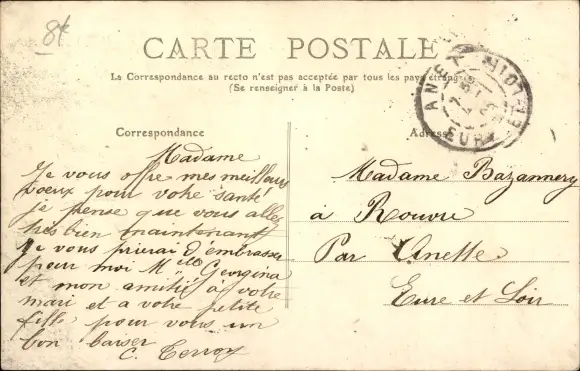 8t
CARTE POSTALE
La Correspondance au recto n'est pas acceptée par tous les pays étrangers
(Se renseigner à la Poste)
Correspondance
Adresse
Madame
Je vous offre mes meilleurs
voeux pour votre santé
je pense que vous allez
très bien maintenant
Je vous prierai d'embrasser
pour moi Mlle Georgina
et mon amitié à votre
mari et a votre petite
fille pour vous un
bon baiser
C. Terroy
Madame Bazannery
à Rouvre
Par Anette
Eure et Loir
ANET
EURE